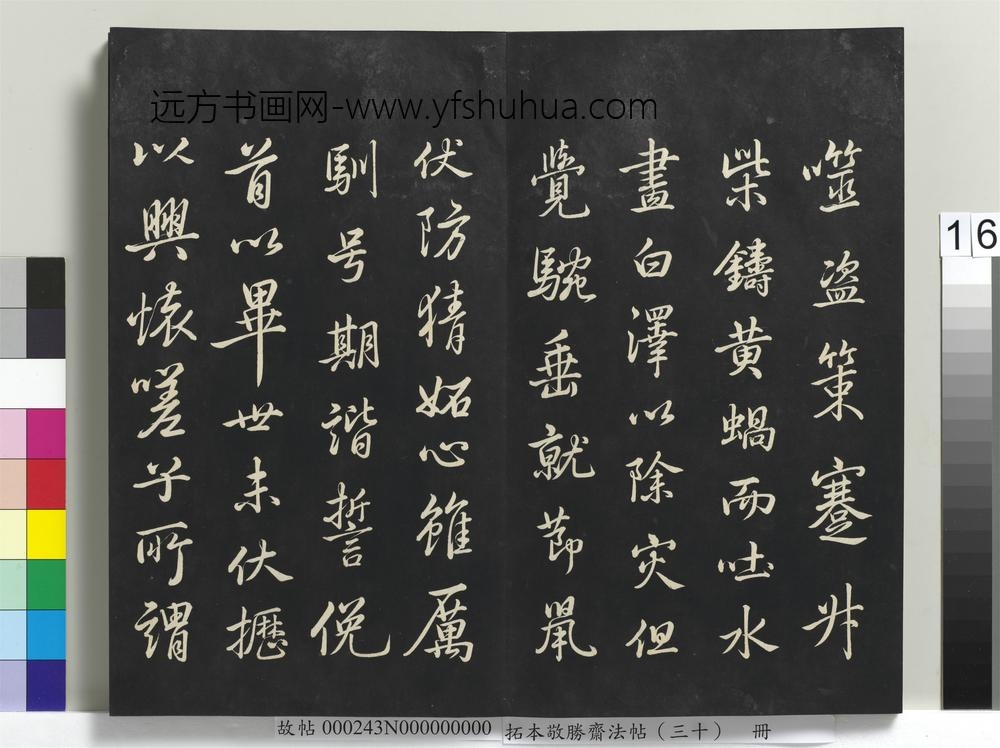 远方书画网-www.yfshuhua.com
噬盗策蹇廾
柴鑄黄蝸而吐水
畫白澤以除灾但
覺騕垂就節
伏防猜妬心雖厲
馴号期諧誓俛
首以畢世未伏攊
以興懷嗟乎所謂
16
故帖 000243N000000000 拓本敬勝齋法帖（三十） 冊